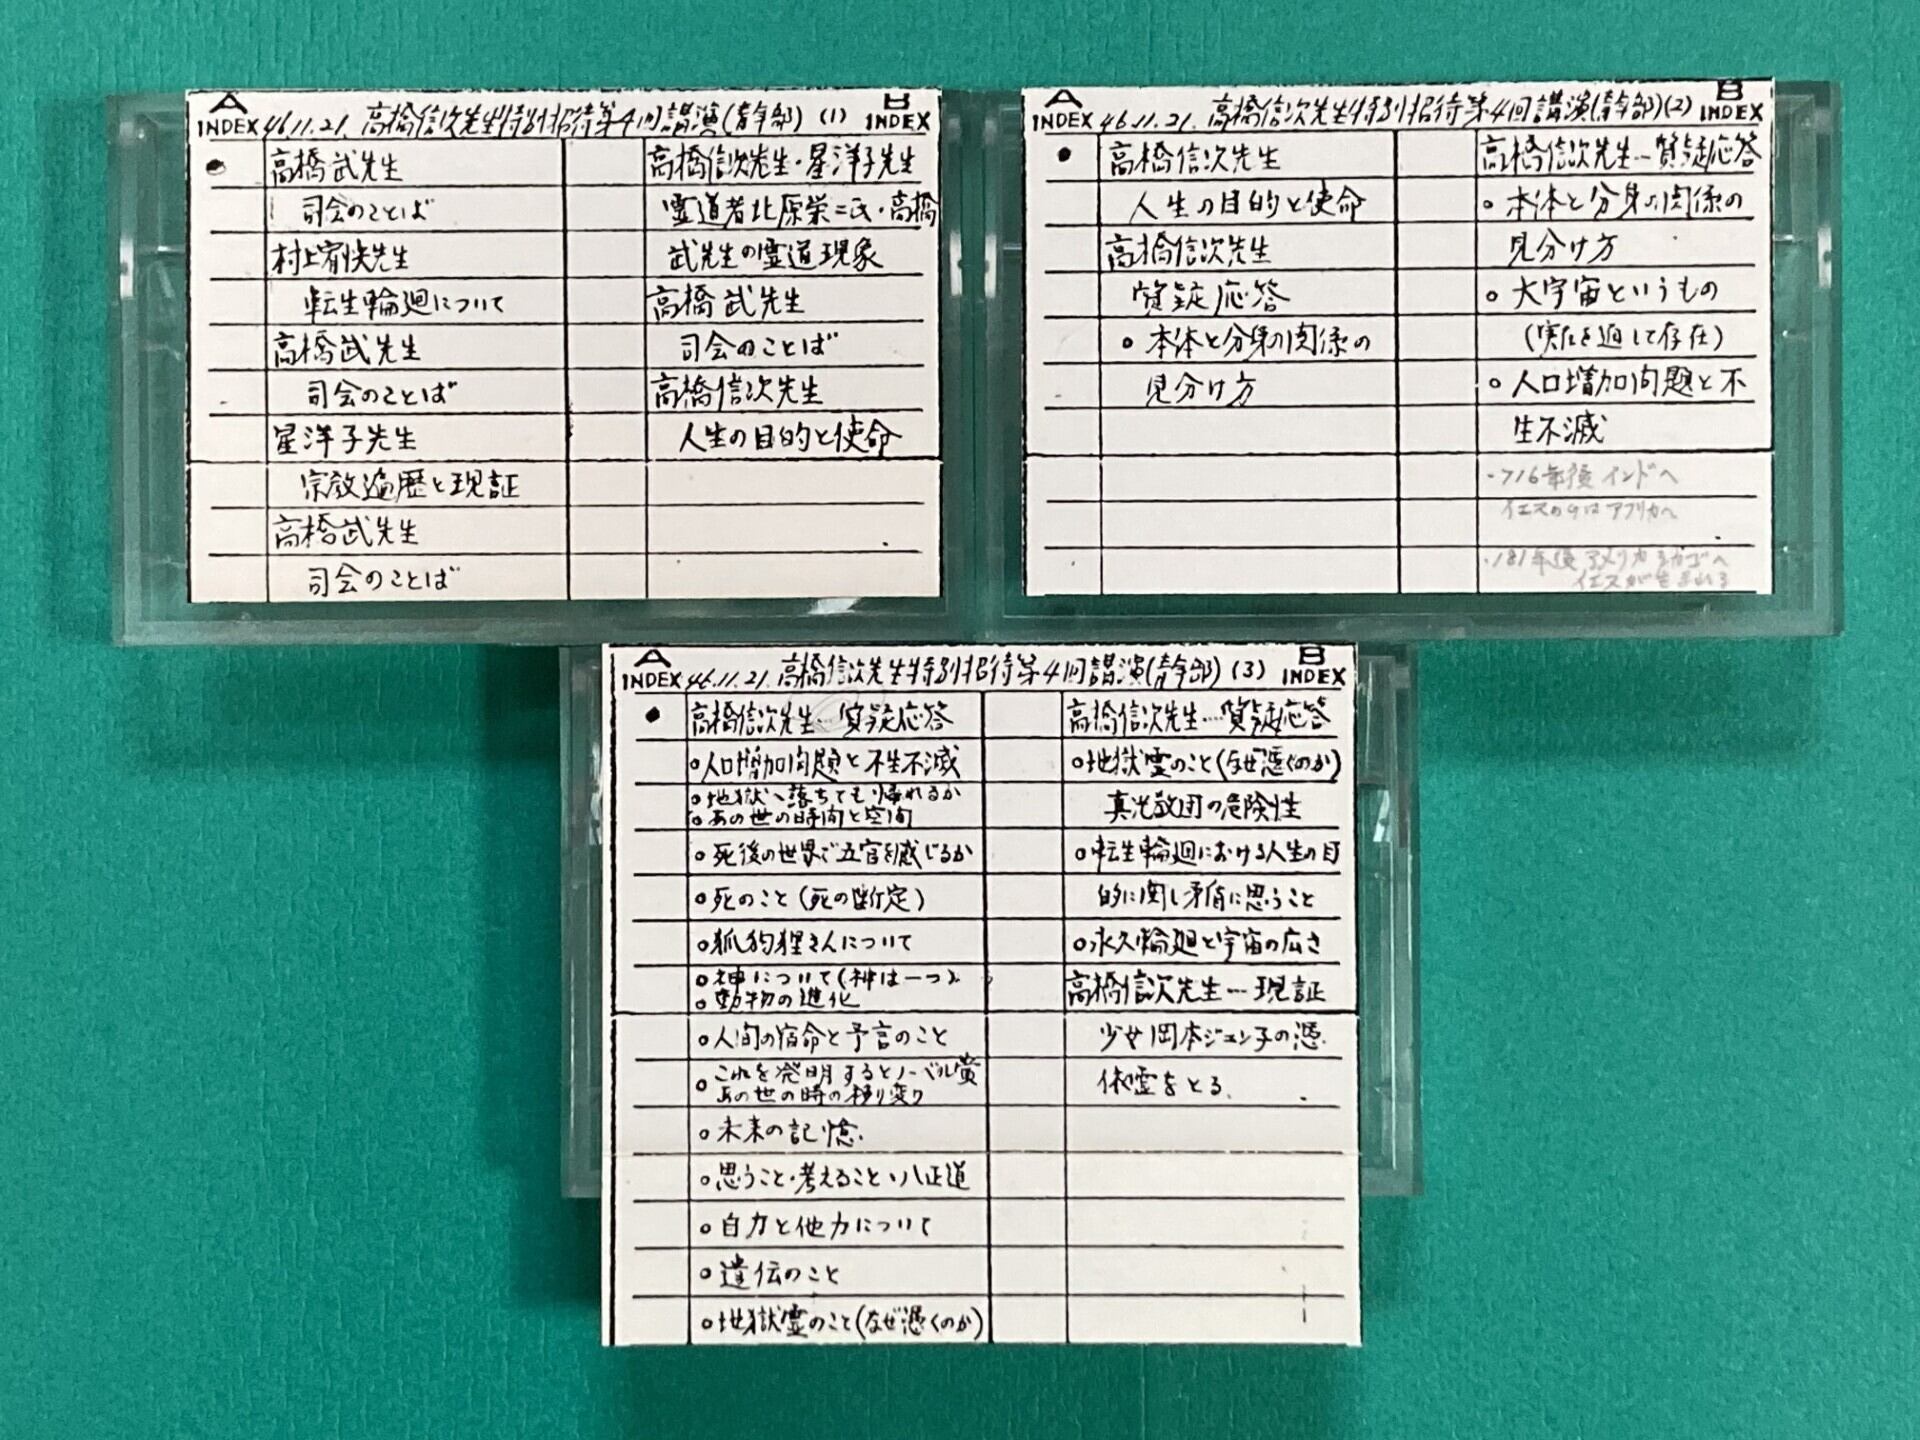 A B
INDEX 46.11.21. 高橋信次先生特別招待第4回講演(青年部) (1) INDEX
高橋武先生
司会のことば
村上宥快先生
転生輪廻について
高橋武先生
司会のことば
星洋子先生
宗教遍歴と現証
高橋武先生
司会のことば
高橋信次先生・星洋子先生
霊道者北原栄二氏・高橋
武先生の霊道現象
高橋武先生
司会のことば
高橋信次先生
人生の目的と使命
A B
INDEX 46.11.21. 高橋信次先生特別招待第4回講演(青年部)(2) INDEX
高橋信次先生
人生の目的と使命
高橋信次先生
質疑応答
○本体と分身の関係の
見分け方
高橋信次先生…質疑応答
○本体と分身の関係の
見分け方
○大宇宙というもの
(実在を通して存在)
○人口増加問題と不
生不滅
・716年後インドへ
・181年後アメリカシカゴへ
イエスが生まれる
A B
INDEX 46.11.21. 高橋信次先生特別招待第4回講演(青年部) (3) INDEX
高橋信次先生…質疑応答
○人口増加問題と不生不滅
○地獄へ落ちても帰れるか
○あの世の時間と空間
○死後の世界で五官を感じるか
○死のこと(死の断定)
○狐狗狸さんについて
○神について(神は一つ)
○動物の進化
○人間の宿命と予言のこと
○これを発明するとノーベル賞
あの世の時の移り変り
○未来の記憶.
○思うこと・考えること・八正道
○自力と他力について
○遺伝のこと
○地獄霊のこと(なぜ憑くのか)
高橋信次先生…質疑応答
○地獄霊のこと(なぜ憑くのか)
真光教団の危険性
○転生輪廻における人生の目
的に関し矛盾に思うこと
○永久輪廻と宇宙の広さ
高橋信次先生…現証
少女岡本ジュン子の憑
依霊をとる.